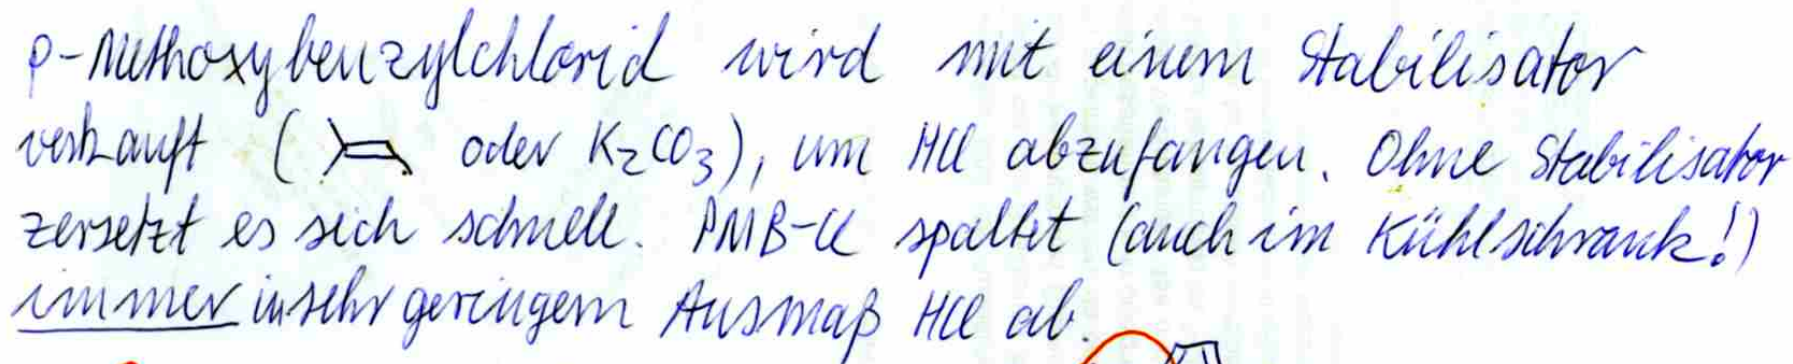 p-Methoxybenzylchlorid wird mit einem Stabilisator
verkauft ( oder K₂CO₃), um HCl abzufangen. Ohne Stabilisator
zersetzt es sich schnell. PMB-Cl spaltet (auch im Kühlschrank!)
immer in sehr geringem Ausmaß HCl ab.